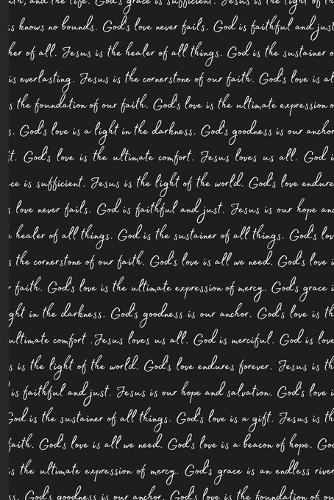 and the life. God's grace is sufficient. Jesus is the light of th
s knows no bounds. God's love never fails. God is faithful and just
her of all. Jesus is the healer of all things. God is the sustainer o
is everlasting. Jesus is the cornerstone of our faith. God's love is al
s the foundation of our faith. God's love is the ultimate expression o
s. God's love is a light in the darkness. God's goodness is our anchor
t. God's love is the ultimate comfort. Jesus loves us all. God
ce is sufficient. Jesus is the light of the world. God's love endure
love never fails. God is faithful and just. Jesus is our hope an
healer of all things. God is the sustainer of all things. God's lov
s the cornerstone of our faith. God's love is all we need. God's love i
faith. God's love is the ultimate expression of mercy. God's grace i
ght in the darkness. God's goodness is our anchor. God's love is th
ultimate comfort. Jesus loves us all. God is merciful. God is love
s is the light of the world. God's love endures forever. Jesus is th
is faithful and just. Jesus is our hope and salvation. God's love i
God is the sustainer of all things. God's love is a gift. Jesus is
faith. God's love is all we need. God's love is a beacon of hope. Go
s the ultimate expression of mercy. God's grace is an endless river
s. God's goodness is our anchor. God's love is the foundation of o